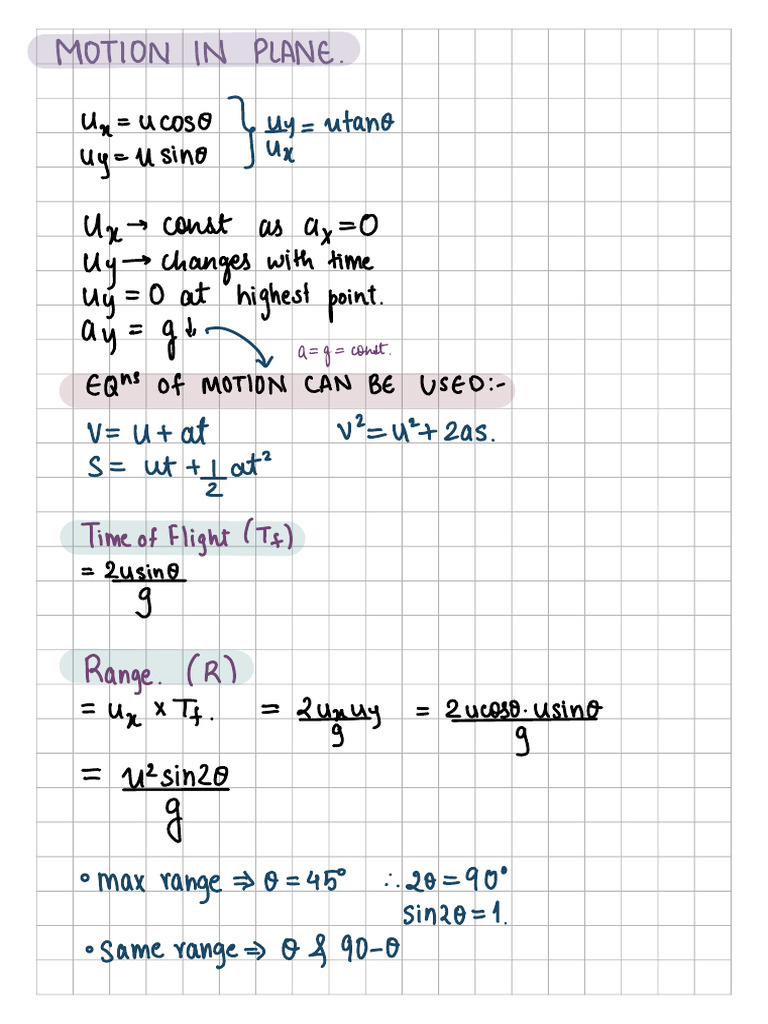 MOTION IN PLANE.
uₓ = u cosθ } uy/uₓ = u tanθ
uy = u sinθ
uₓ → const as aₓ = 0
uy → changes with time
uy = 0 at highest point.
ay = g↓
a = g = const.
EQⁿˢ OF MOTION CAN BE USED:-
V = u + at    V² = u² + 2as.
S = ut + 1/2 at²
Time of Flight (Tf)
= 2usinθ/g
Range. (R)
= uₓ × Tf. = 2uₓuy/g = 2ucosθ·usinθ/g
= u²sin2θ/g
• max range ⇒ θ = 45° ∴ 2θ = 90°
sin2θ = 1.
• Same range ⇒ θ & 90-θ